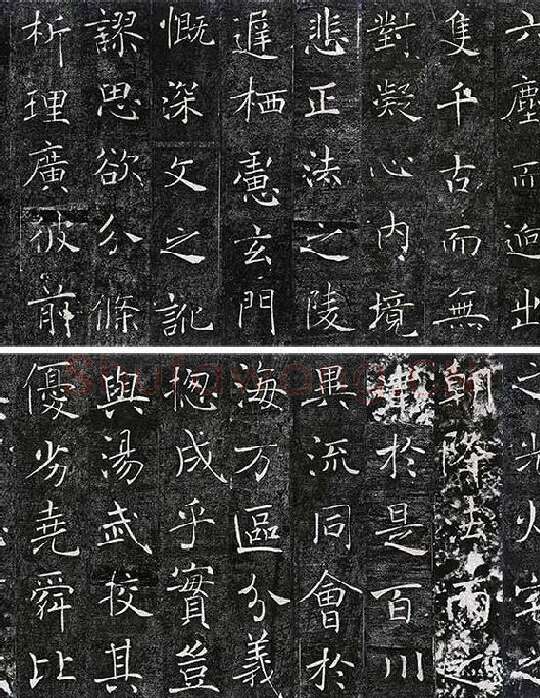 六塵而逈出
隻千古而無
對凝心内境
悲正法之陵
遲栖慮玄門
慨深文之訛
謬思欲分條
析理廣彼前
之光火宅之
朝降法雨之
澤於是百川
異流同會於
海万區分義
揔成乎實豈
與湯武校其
優劣堯舜比